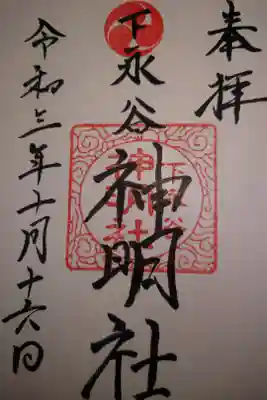 奉拝
下永谷
神明社
令和三年十一月十六日